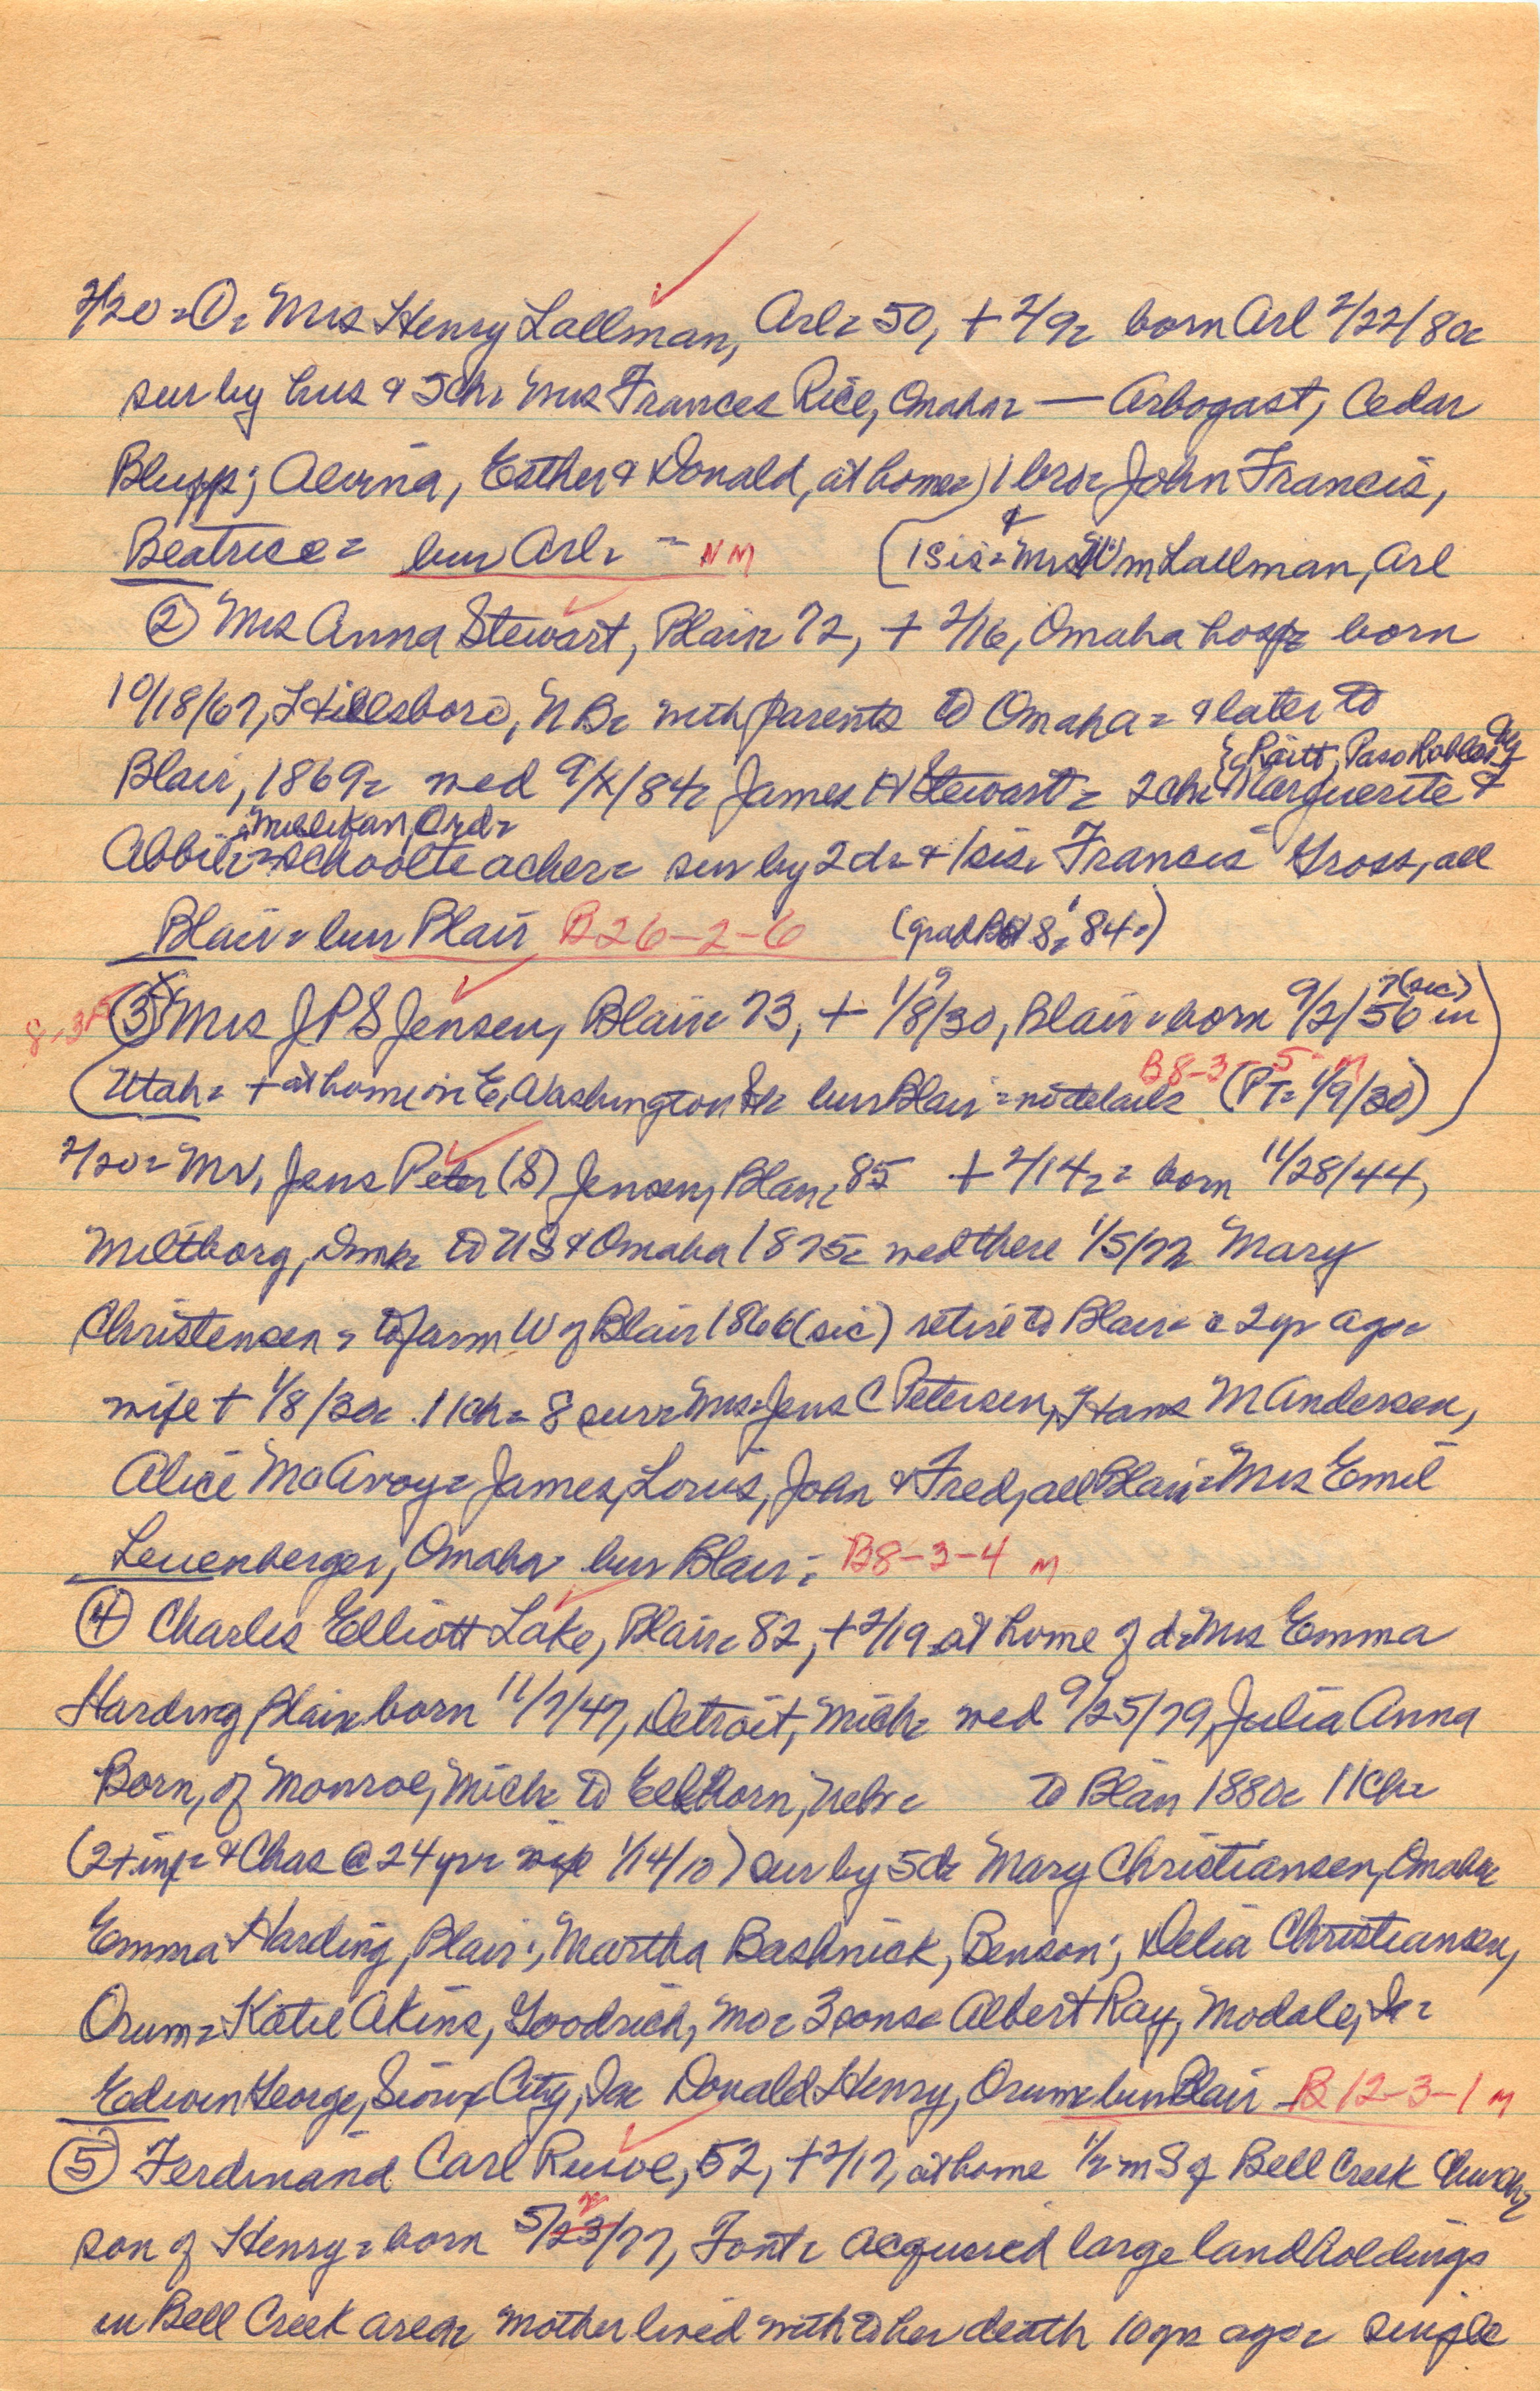 2/20 = ① = Mrs Henry Lallman, Arl = 50, + 2/9 = born Arl 2/22/80 =
sur by hus & 5 ch = Mrs Frances Rice, Omaha = — Arbogast, Cedar
Bluffs; Alvina, Esther & Donald, at home =) 1 bro = John Francis,
Beatrice = bur Arl = = NM (& 1 sis = Mrs Wm Lallman, Arl
② Mrs Anna Stewart, Blair = 72, + 2/16, Omaha hosp = born
10/18/67, Hillsboro, NB = with parents to Omaha = & later to
Raitt, Paso Robles
Blair, 1869 = wed 9/4/84 = James H Stewart = 2 ch = Marguerite &
Millikan, Ord =
Abbie = schoolteacher = sur by 2 d = & 1 sis = Francis Gross, all
Blair = bur Blair B26-2-6 (grad BHS = '84 =)
8-3
③ Mrs J P S Jensen, Blair = 73, + 1/8/30, Blair = born 9/2/56 7(sic) in
9
Utah = + at home on E, Washington St = bur Blair = no details (PT = 1/9/30)
B8-3-5 M
2/20 = Mr, Jens Peter (S) Jensen, Blair, 85 + 2/14 = = born 11/28/44,
Miltborg, Dmk = to US & Omaha 1875 = wed there 1/5/77 Mary
Christensen = to farm W of Blair 1866 (sic) retire to Blair = c 2 yr ago =
wife + 1/8/30 = 11 ch = 8 surv = Mrs = Jens C Petersen, Hans M Andersen,
Alice McAvoy = James, Louis, John & Fred, all Blair = Mrs Emil
Leuenberger, Omaha = bur Blair = B8-3-4 M
④ Charles Elliott Lake, Blair = 82, + 2/19 at home of d = Mrs Emma
Harding, Blair = born 11/7/47, Detroit, Mich = wed 9/25/79, Julia Anna
Born, of Monroe, Mich = to Elkhorn, Nebr = to Blair 1880 = 11 ch =
(2 + inf = & Chas @ 24 yr = wife 1/14/10) sur by 5 d = Mary Christiansen, Omaha =
Emma Harding, Blair; Martha Bashnick, Benson; Delia Christiansen,
Orum = Katie Akins, Goodrich, Mo = 3 sons = Albert Ray, Modale, Ia =
Edwin George, Sioux City, Ia = Donald Henry, Orum = bur Blair - B12-3-1 M
⑤ Ferdinand Carl Ruwe, 52, + 2/17, at home 1/2 m S of Bell Creek Church =
son of Henry = born 5/23/77, Font = acquired large landholdings
in Bell Creek area = mother lived with to her death 10 yr ago = single